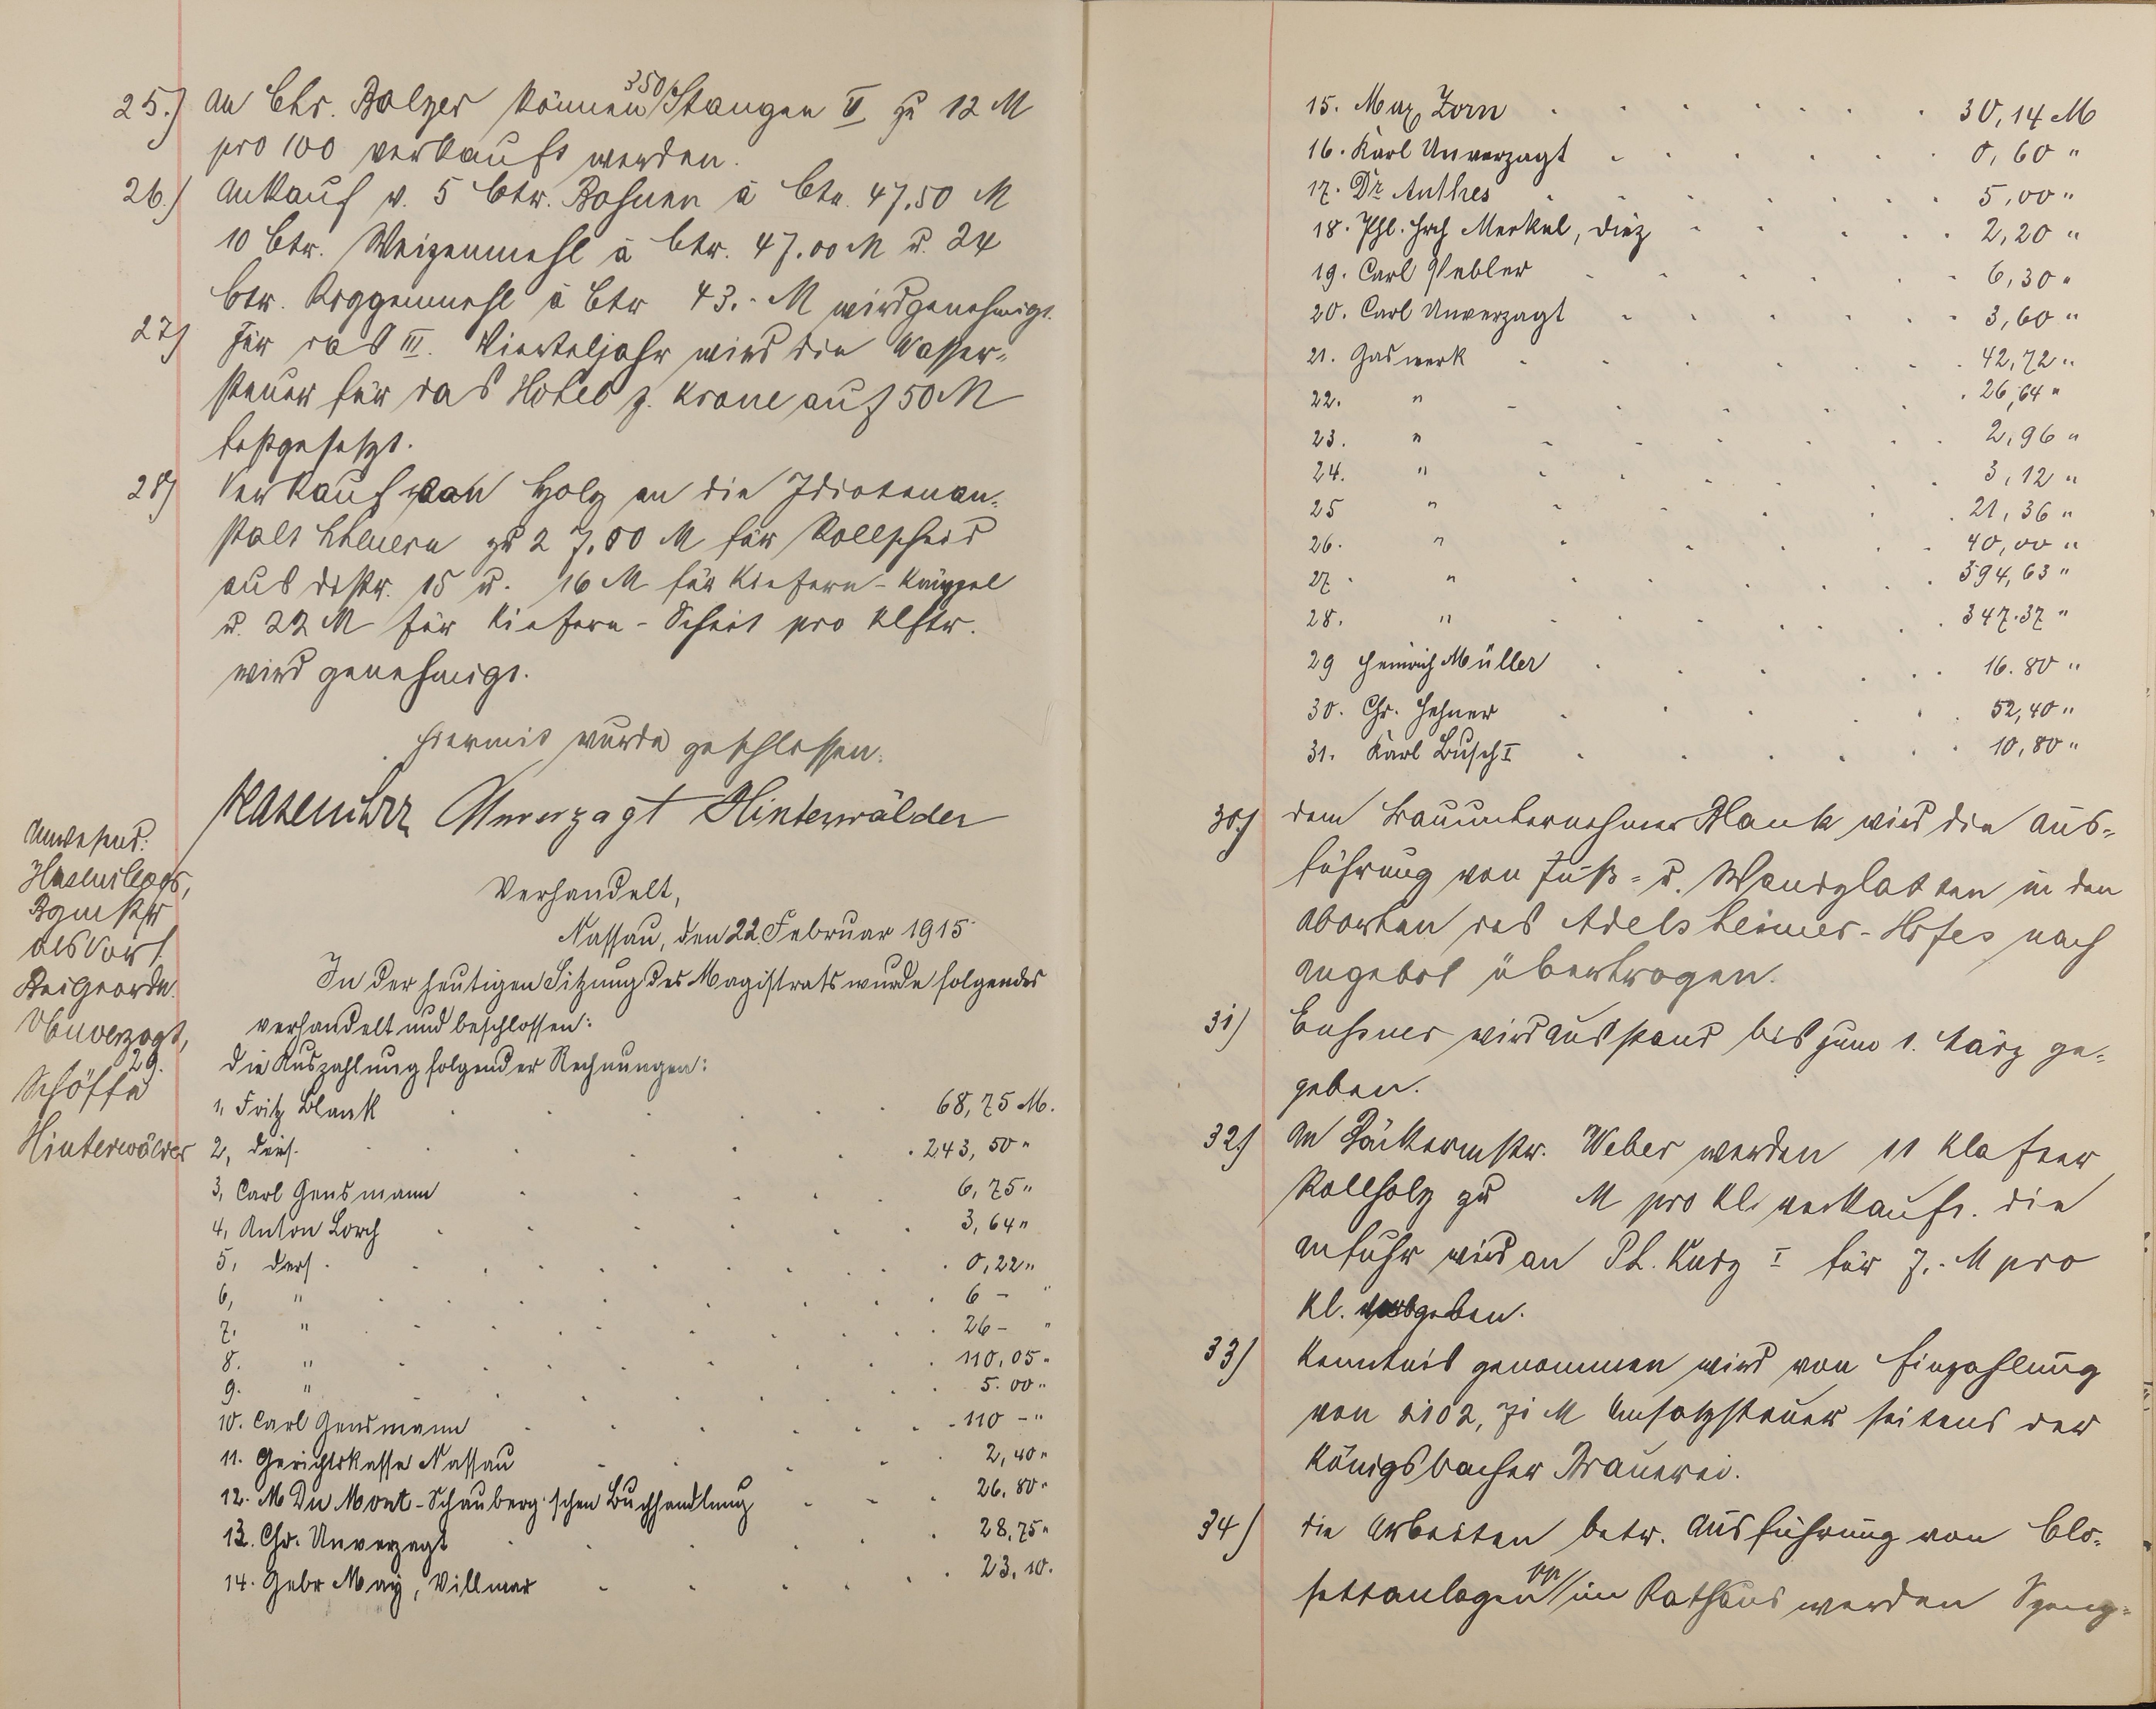 25.) An Chr. Balzer können 350 Stangen V zu 12 M
pro 100 verkauft werden.
26.) Ankauf v. 5 Ctr. Bohnen à Ctr. 47.50 M
10 Ctr. Weizenmehl à Ctr. 47.00 M u. 24
Ctr. Roggenmehl à Ctr 43.- M wird genehmigt.
27) Für das III. Vierteljahr wird die Wasser-
steuer für das Hotel z. Krone auf 50 M
festgesetzt.
28) Verkauf von Holz an die Idiotenan-
stalt Scheuern zu 27.00 M für Rollscheid
aus Distr. 15 u. 16 M für Kiefern-Knüppel
u. 22 M für Kiefern-Scheit pro Klftr.
wird genehmigt.
Hiermit wurde geschlossen.
Hasenclever Unverzagt Hinterwälder
Anwesend:
Hasenclever,
Bgmstr
als Vors.
Beigeordn.
Unverzagt,
Schöffe
Hinterwälder
Verhandelt,
Nassau, den 22 Februar 1915
In der heutigen Sitzung des Magistrats wurde folgendes
verhandelt und beschlossen:
29. die Auszahlung folgender Rechnungen:
1, Fritz Blank 68,75 M.
2, ders. 243,50 "
3, Carl Gensmann 6,75 "
4, Anton Lorch 3,64 "
5, ders. 0,22 "
6, " 6 - "
7. " 26 - "
8. " 110,05 "
9. " 5.00 "
10. Carl Gensmann 110 - "
11. Gerichtskasse Nassau 2,40 "
12. M Du Mont-Schauberg'schen Buchhandlung 26.80 "
13. Chr. Unverzagt 28.75 "
14. Gebr May, Villmar 23.10.
15. Max Zorn 30,14 M
16. Karl Unverzagt 0,60 "
17. Dr Anthes 5,00 "
18. Phl. Hrch Merkel, Diez 2,20 "
19. Carl Pebler 6,30 "
20. Carl Unverzagt 3,60 "
21. Gaswerk 42,72 "
22. " 26,64 "
23. " 2,96 "
24. " 3,12 "
25 " 21,36 "
26. " 40,00 "
27. " 394,63 "
28. " 347.37 "
29 Heinrich Müller 16.80 "
30. Chr. Hehner 52,40 "
31. Karl Busch I 10,80 "
30.) Dem Bauunternehmer Blank wird die Aus-
führung von Fuß- u. Wandplatten in den
Aborten des Adelsheimer-Hofes nach
Angebot übertragen.
31) wird Ausstand bis zum 1. März ge-
geben.
32.) An Bäckermstr. Weber werden 11 Klafter
Rollholz zu M pro Kl. verkauft. Die
Anfuhr wird an Ph. Kurz I für 7.- M pro
Kl. vergeben.
33) Kenntnis genommen wird von Einzahlung
von 2102,71 M Umsatzsteuer seitens der
Königsbacher Brauerei.
34) Die Arbeiten betr. Ausführung von Clo-
settanlagen pp im Rathaus werden Speng-